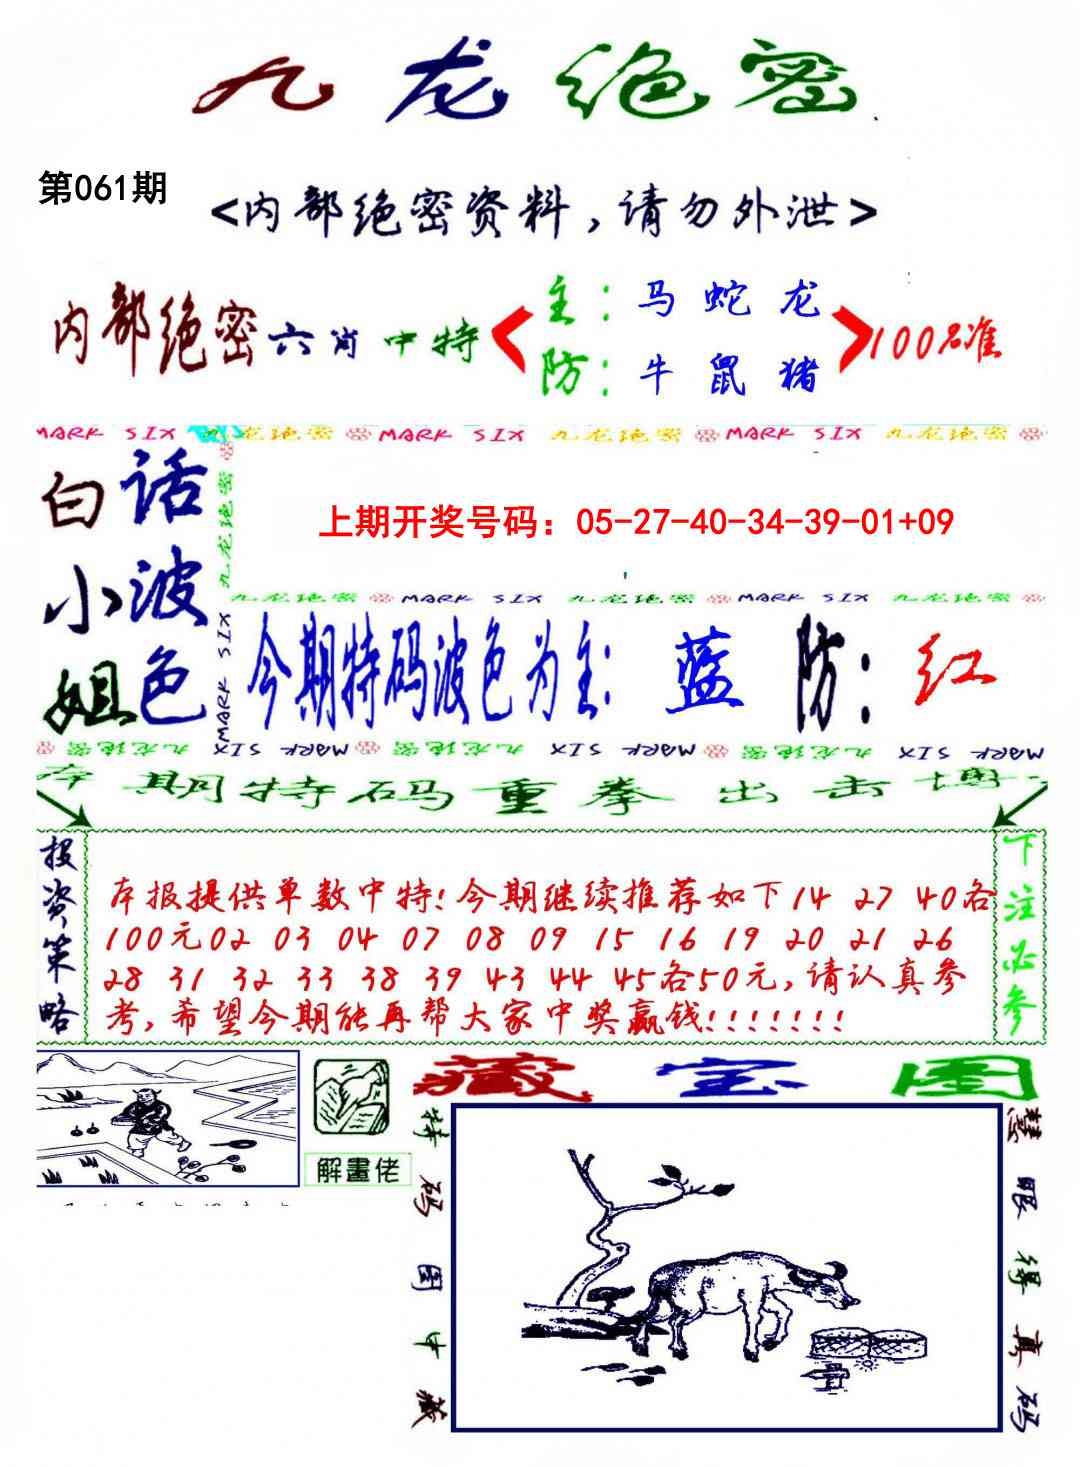 九龙绝密
第061期
<内部绝密资料,请勿外泄>
内部绝密六肖中特
主:马蛇龙
防:牛鼠猪
100%准
MARK SIX 九龙绝密 MARK SIX 九龙绝密 MARK SIX 九龙绝密
白小姐
话波色
九龙绝密
MARK SIX
上期开奖号码：05-27-40-34-39-01+09
九龙绝密 MARK SIX 九龙绝密 MARK SIX 九龙绝密
今期特码波色为主:蓝 防:红
九龙绝密 MARK SIX 九龙绝密 MARK SIX 九龙绝密 MARK SIX
本期特码重拳出击博
投资策略
本报提供单数中特!今期继续推荐如下14 27 40各
100元02 03 04 07 08 09 15 16 19 20 21 26
28 31 32 33 38 39 43 44 45各50元,请认真参
考,希望今期能再帮大家中奖赢钱!!!!!!!
下注必参
解畫佬
藏宝图
特码图中藏
慧眼得真码